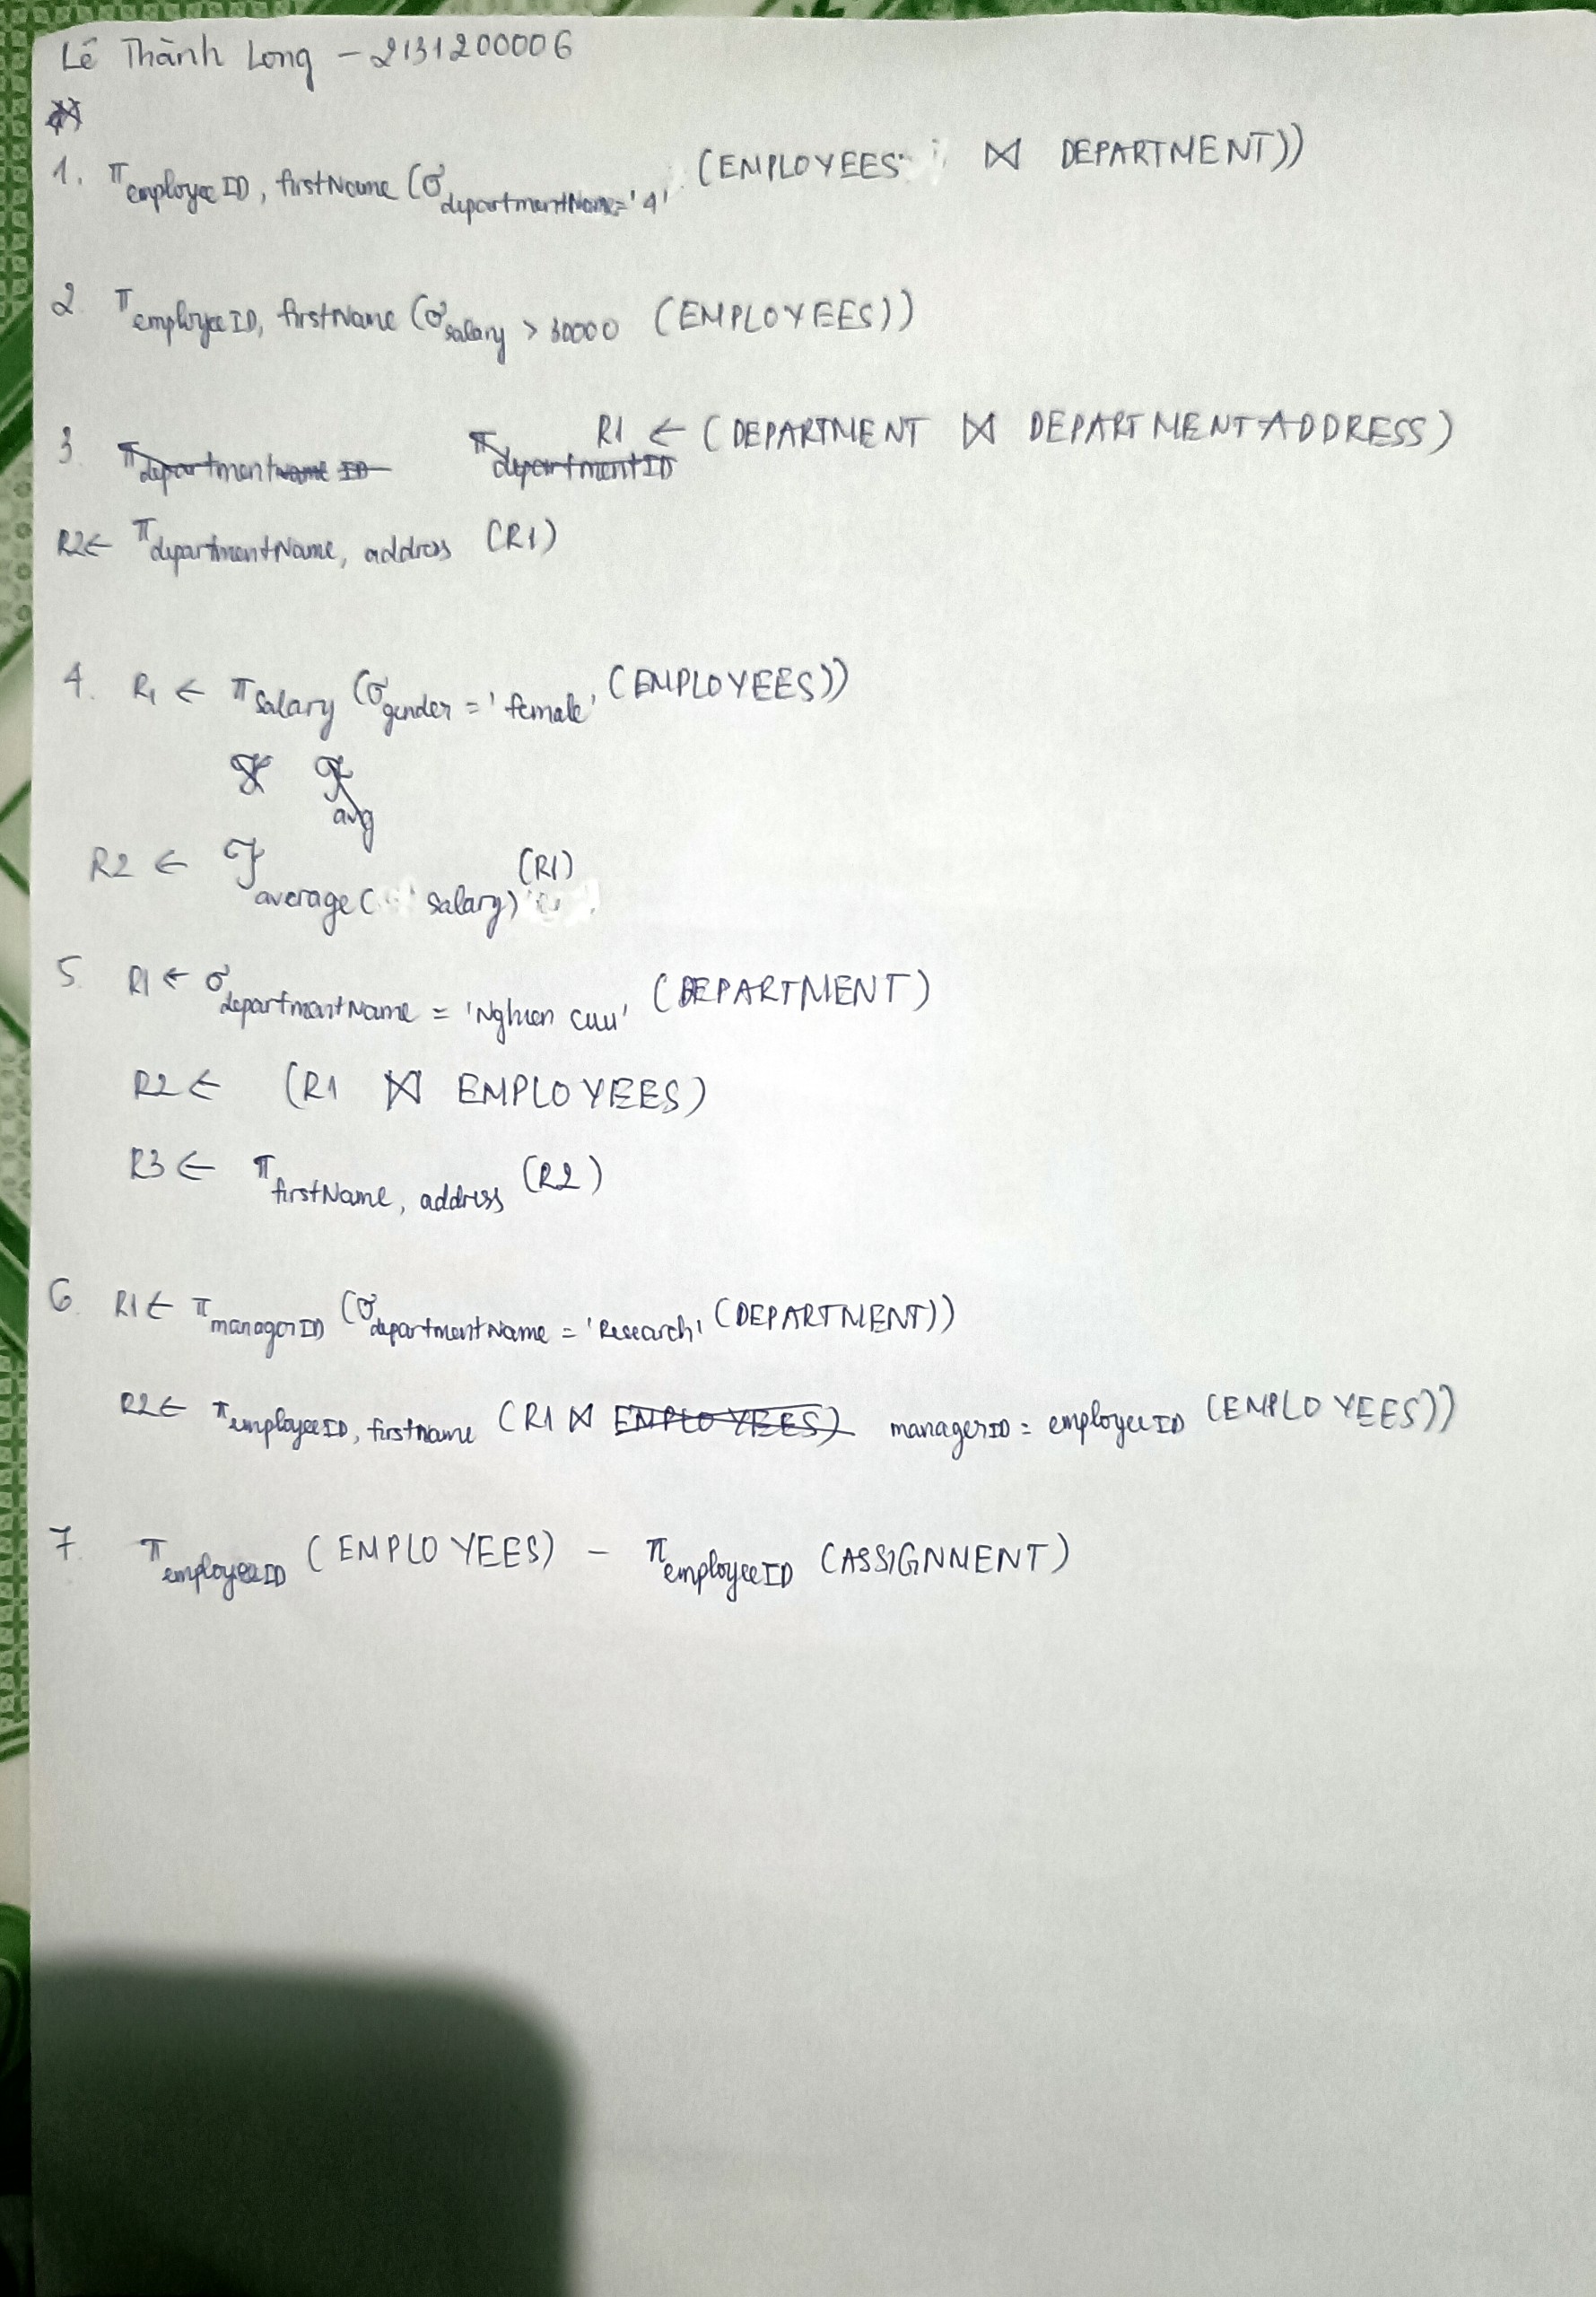 Lê Thành Long – 2131200006
1. π employeeID, firstName (σ departmentName='4' (EMPLOYEES ⋈ DEPARTMENT))
2 π employeeID, firstName (σ salary > 30000 (EMPLOYEES))
3. π departmentname ID π departmentID R1 ← (DEPARTMENT ⋈ DEPARTMENTADDRESS)
R2 ← π departmentName, address (R1)
4. R1 ← π salary (σ gender = 'female' (EMPLOYEES))
ℱ ℱ avg
R2 ← ℱ average( salary) (R1)
5. R1 ← σ departmentName = 'Nghien cuu' (DEPARTMENT)
R2 ← (R1 ⋈ EMPLOYEES)
R3 ← π firstName, address (R2)
6. R1 ← π managerID (σ departmentName = 'Research' (DEPARTMENT))
R2 ← π employeeID, firstname (R1 ⋈ EMPLOYEES) managerID = employeeID (EMPLOYEES))
7. π employeeID (EMPLOYEES) – π employeeID (ASSIGNMENT)